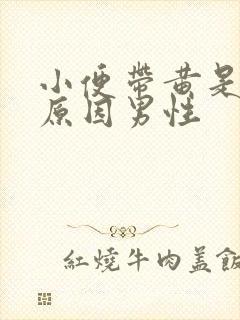 小便带黄是
原因男性
红烧牛肉盖饭